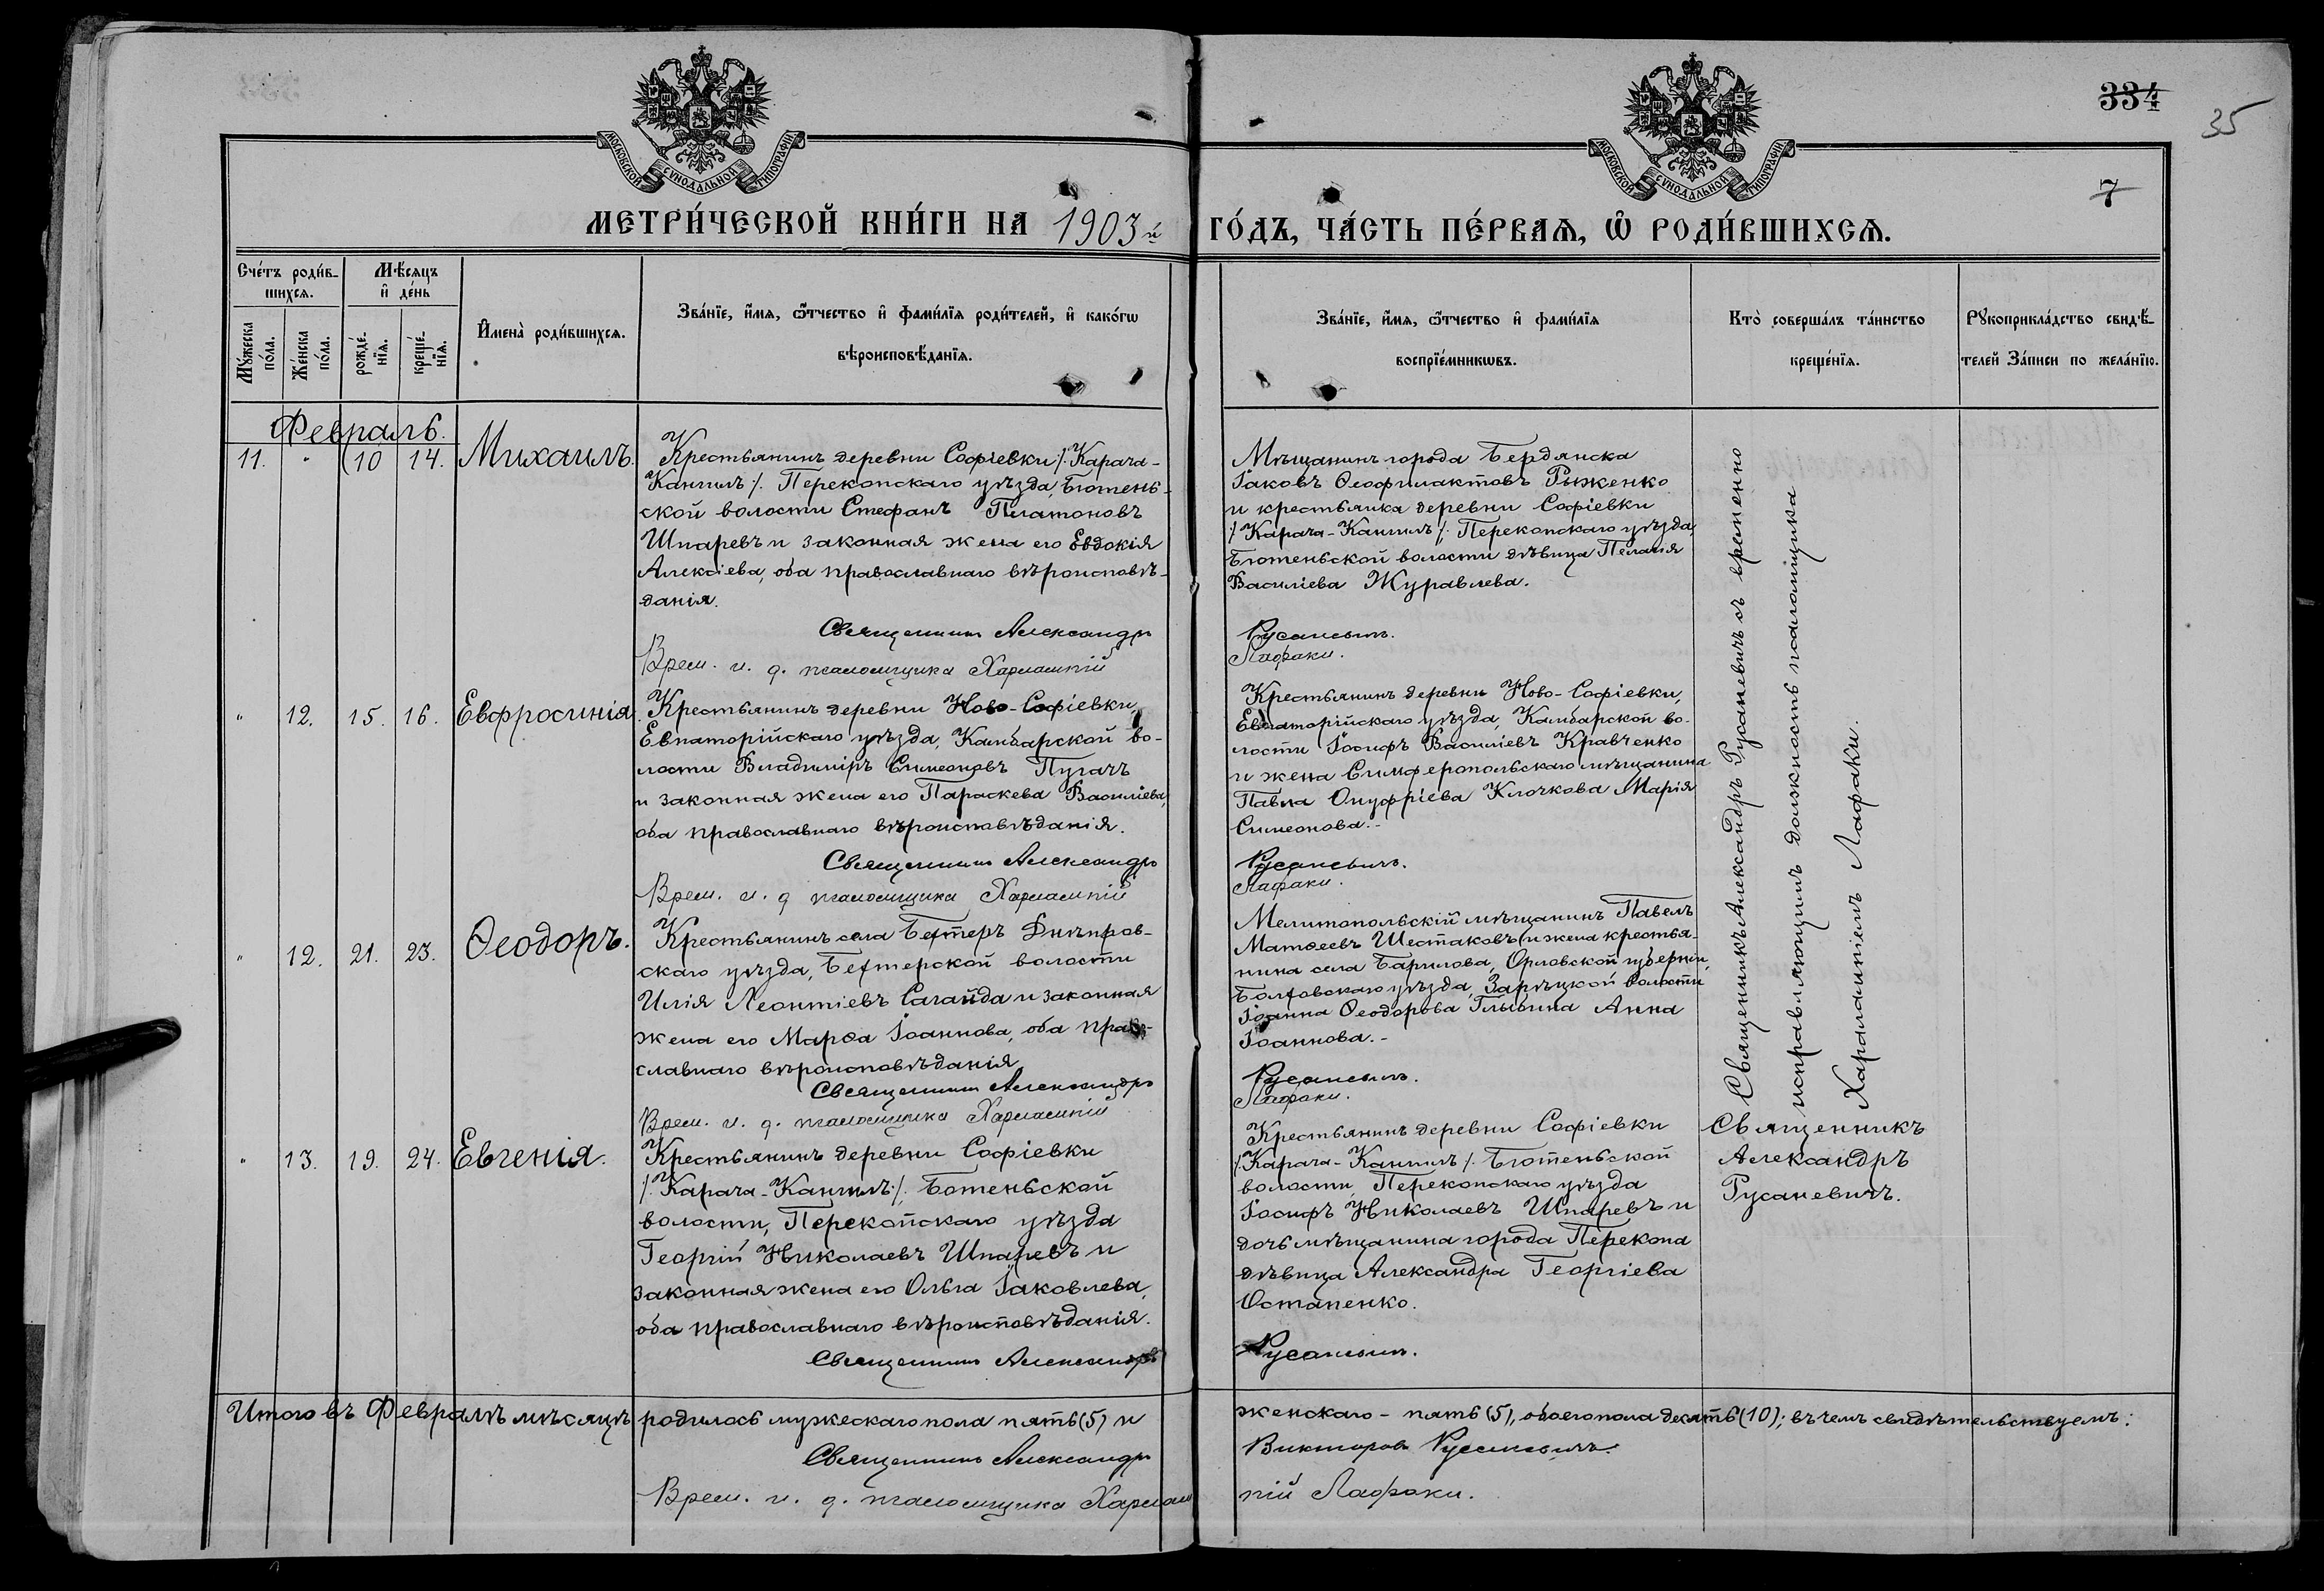 334
35
7
МОСКОВСКОЙ СУНОДАЛЬНОЙ ТИПОГРАФІИ
МОСКОВСКОЙ СУНОДАЛЬНОЙ ТИПОГРАФІИ
МЕТРИ́ЧЕСКОЙ КНИ́ГИ НА 1903й ГО́ДЪ, ЧА́СТЬ ПЕ́РВАЯ, Ѡ РОДИ́ВШИХСЯ.
Сче́тъ роди́в-
шихся.
Мѣ́сяцъ
и҆ де́нь
Мꙋ́жеска по́ла.
Же́нска по́ла.
рожде́-
нїя.
креще́-
нїя.
И҆мена̀ роди́вшихся.
Зва́нїе, и҆́мя, ѻ҆́тчество и҆ фами́лїя роди́телей, и҆ како́гѡ
вѣроисповѣ́данїя.
Зва́нїе, и҆́мя, ѻ҆́тчество и҆ фами́лїя
воспрїе́мникѡвъ.
Кто̀ соверша́лъ та́инство
креще́нїя.
Рꙋкоприкла́дство свидѣ́-
телей За́писи по жела́нїю.
Февраль.
11. " 10 14. Михаилъ.
Крестьянинъ деревни Софіевки /:Карача-
Кангилъ:/. Перекопскаго уѣзда, Бютень-
ской волости Стефанъ Платоновъ
Шпаревъ и законная жена его Евдокія
Алексіева, оба православнаго вѣроисповѣ-
данія.
Священникъ Александръ
Врем. и. д. псаломщика Харлампій
Мѣщанинъ города Бердянска
Іаковъ Ѳеофилактовъ Рыженко
и крестьянка деревни Софіевки
/:Карача-Кангилъ:/. Перекопскаго уѣзда,
Бютеньской волости дѣвица Пелагія
Василіева Журавлева.
Русаневичъ.
Лафаки.
" 12. 15. 16. Евфросинія.
Крестьянинъ деревни Ново-Софіевки,
Евпаторійскаго уѣзда, Камбарской во-
лости Владиміръ Симеоновъ Пугачъ
и законная жена его Параскева Василіева,
оба православнаго вѣроисповѣданія.
Священникъ Александръ
Врем. и. д. псаломщика Харлампій
Крестьянинъ деревни Ново-Софіевки,
Евпаторійскаго уѣзда, Камбарской во-
лости Іосифъ Василіевъ Кравченко
и жена Симферопольскаго мѣщанина
Павла Онуфріева Клочкова Марія
Симеонова.-
Русаневичъ.
Лафаки.
" 12. 21. 23. Ѳеодоръ.
Крестьянинъ села Бехтеръ Днѣпров-
скаго уѣзда, Бехтерской волости
Илія Леонтіевъ Сагайда и законная
жена его Марѳа Іоаннова, оба право-
славнаго вѣроисповѣданія.
Священникъ Александръ
Врем. и. д. псаломщика Харлампій
Мелитопольскій мѣщанинъ Павелъ
Матѳеевъ Шестаковъ и жена крестья-
нина села Барилова, Орловской губерніи,
Болховскаго уѣзда, Зарѣцкой волости
Іоанна Ѳеодорова Глыбина Анна
Іоаннова.-
Русаневичъ.
Лафаки.
Священникъ Александръ Русаневичъ съ временно
исправляющимъ должность псаломщика
Харалампіемъ Лафаки.
" 13. 19. 24. Евгенія.
Крестьянинъ деревни Софіевки
/:Карача-Кангилъ:/. Бютеньской
волости, Перекопскаго уѣзда
Георгій Николаевъ Шпаревъ и
законная жена его Ольга Іаковлева,
оба православнаго вѣроисповѣданія.
Священникъ Александръ
Крестьянинъ деревни Софіевки
/:Карача-Кангилъ:/. Бютеньской
волости, Перекопскаго уѣзда
Іосифъ Николаевъ Шпаревъ и
дочь мѣщанина города Перекопа
дѣвица Александра Георгіева
Остапенко.
Русаневичъ.
Священникъ
Александръ
Русаневичъ.
Итого въ Февралѣ мѣсяцѣ родилось мужескаго пола пять (5) и женскаго - пять (5), обоего пола десять (10); въ чемъ свидѣтельствуемъ:
Священникъ Александръ Викторовъ Русаневичъ.
Врем. и. д. псаломщика Харлампій Лафаки.